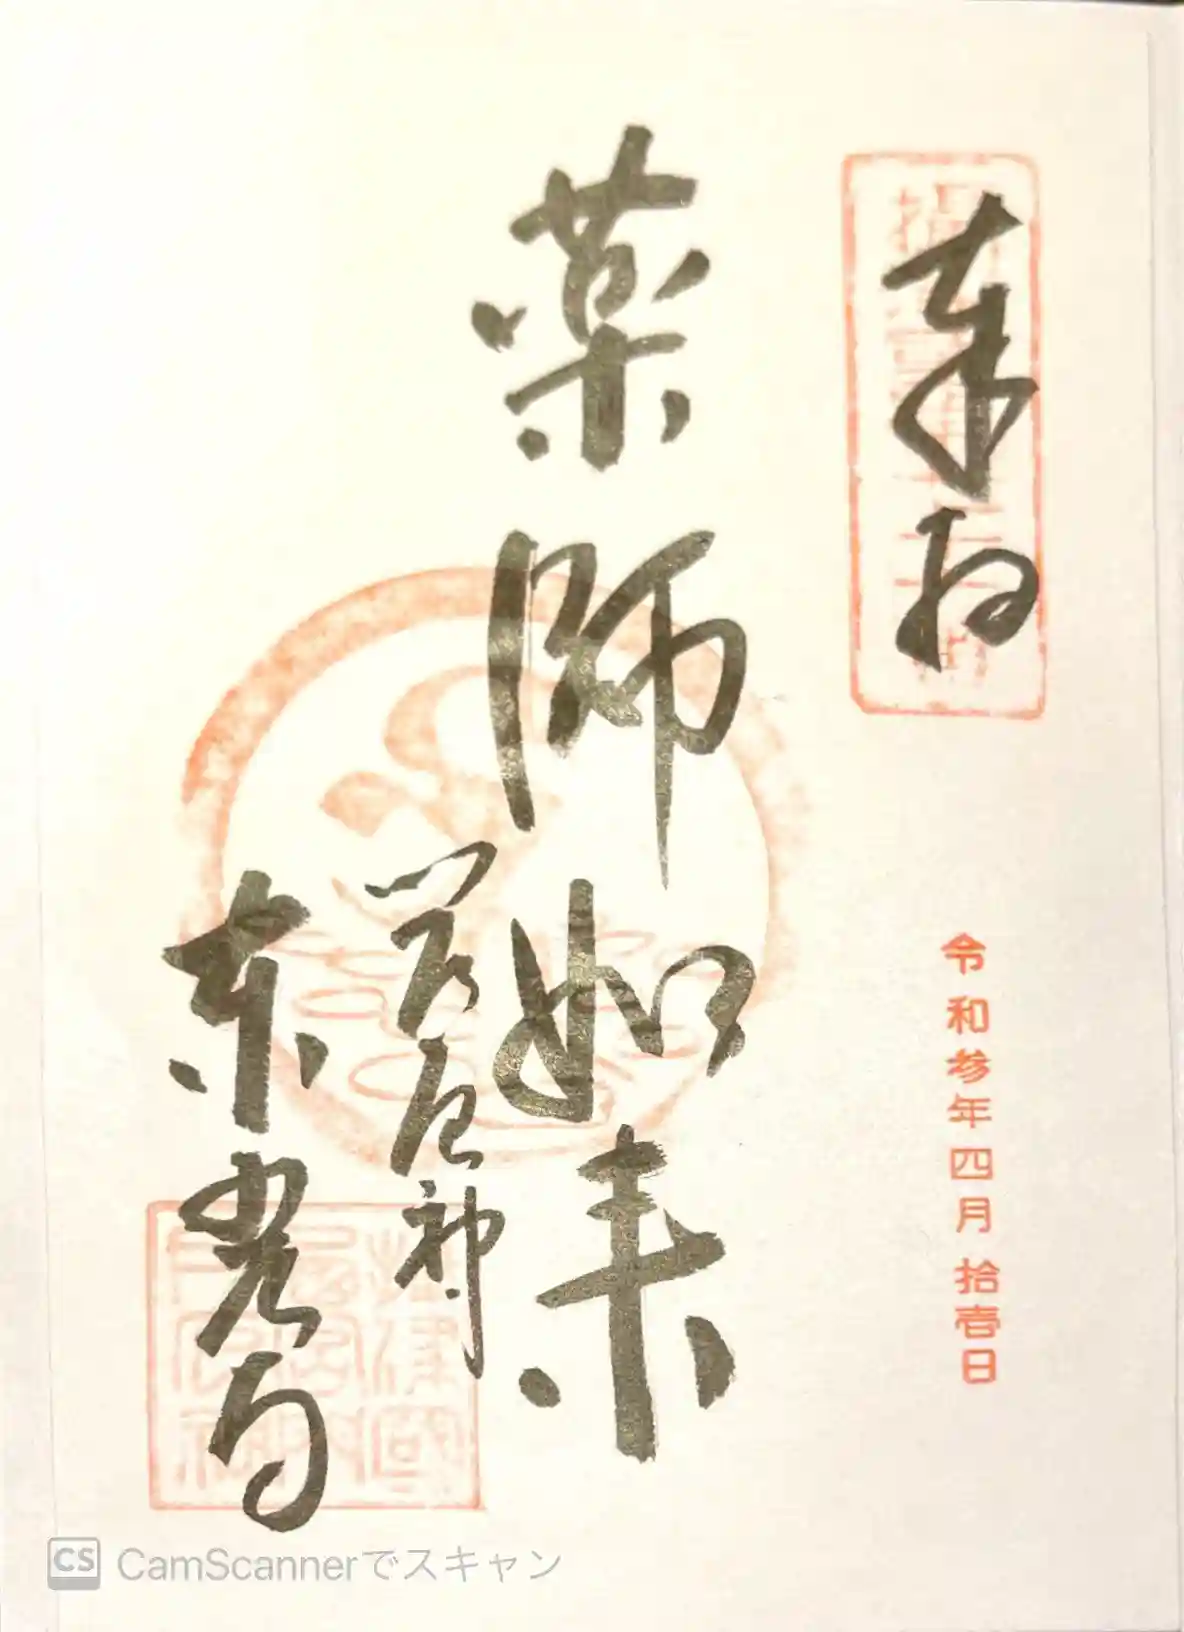 奉拝
令和参年四月拾壱日
薬師如来
門戸厄神
東光寺
CS CamScannerでスキャン